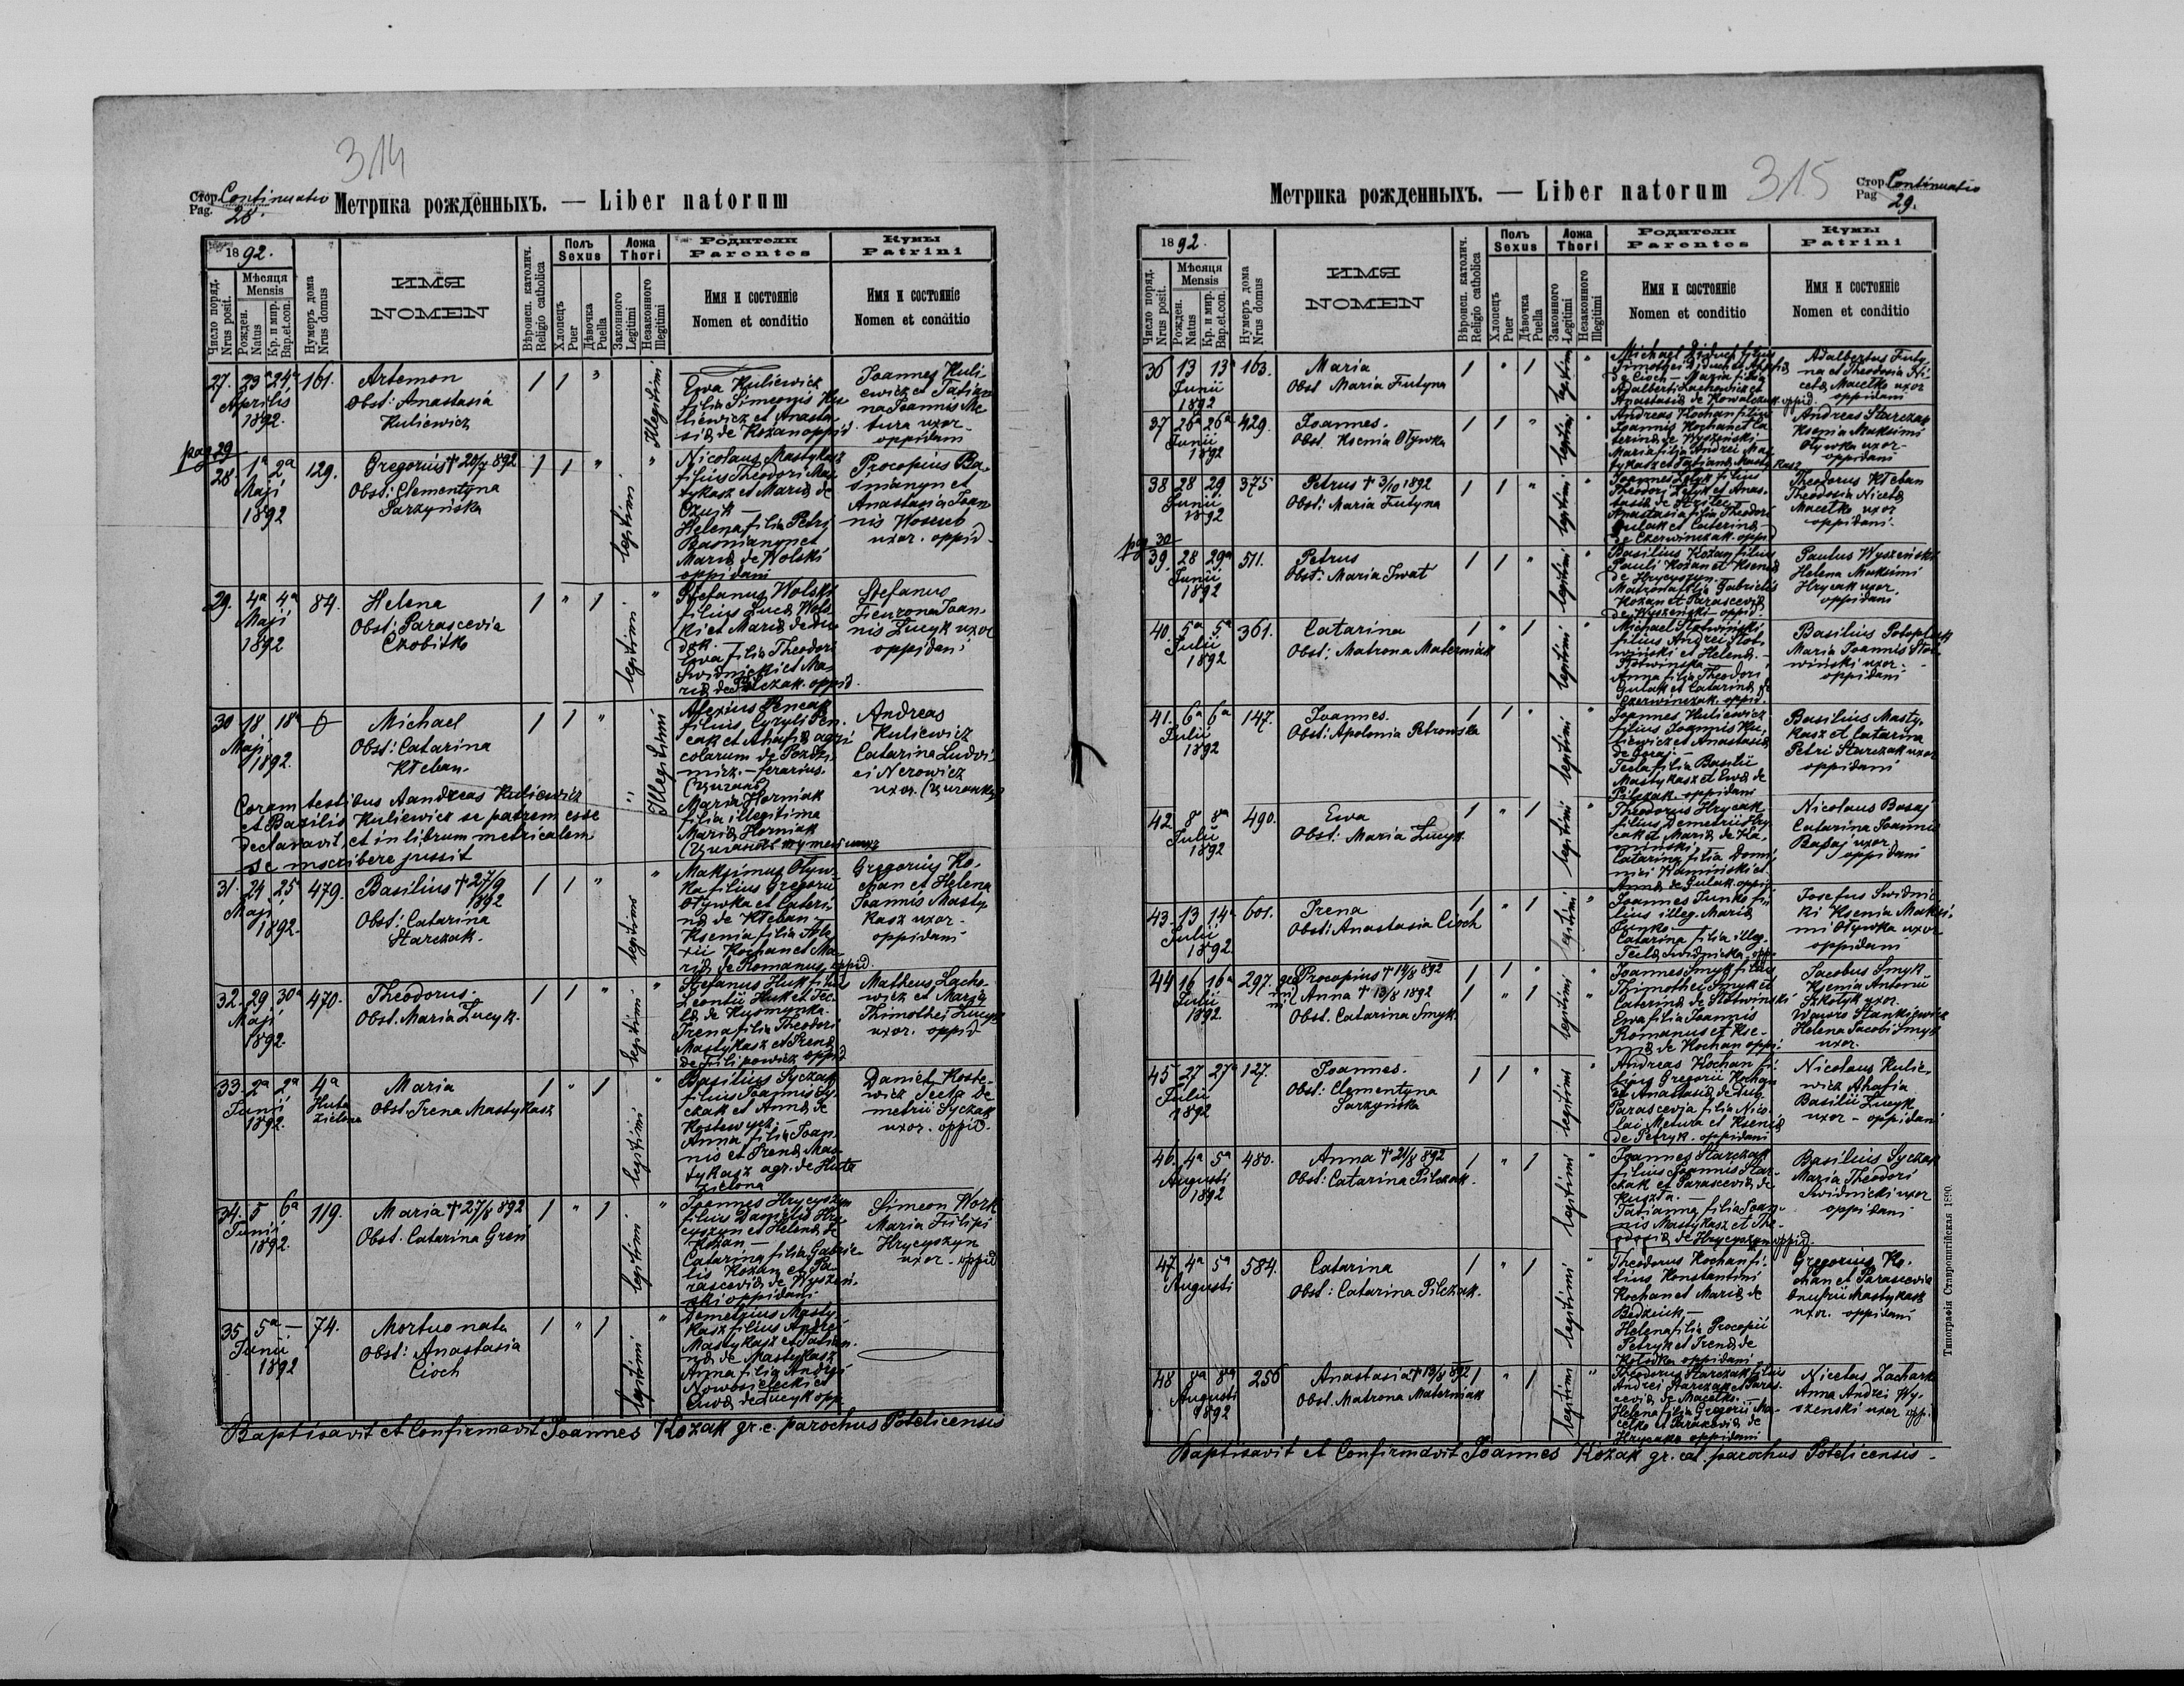 314
Стор. Continuatio
Pag. 28.
Метрика рожденныхъ. — Liber natorum
1892.
Число поряд.
Nrus posit.
Мѣсяця
Mensis
Рожден.
Natus
Кр. и мир.
Bap.et.con.
Нумеръ дома
Nrus domus
ИМЯ
NOMEN
Вѣроисп. католич.
Religio catholica
Полъ
Sexus
Хлопецъ
Puer
Дѣвочка
Puella
Ложа
Thori
Законного
Legitimi
Незаконного
Illegitimi
Родители
Parentes
Имя и состояніе
Nomen et conditio
Кумы
Patrini
Имя и состояніе
Nomen et conditio
27. 23a 24a 161.
Aprilis
1892.
Artemon
Obst: Anastasia
Kuliewicz
1 1 "
Illegitimi
Ewa Kuliewicz
filia Simeonis Ku
liewicz et Anasta-
siæ de Kozan oppid.
Joannes Kuli
ewicz et Tatian
na Joannis Me
tura uxor-
oppidani
pag 29
28 1a 2a 129.
Maji
1892
Gregorius † 20/7 892
Obst: Clementyna
Parzyńska
1 1 "
legitimi "
Nicolaus Mastykasz
filius Theodori Mas
tykasz et Mariæ de
Helena filia Petri
Basmanyn et
Mariæ de Wolski
oppidani
Procopius Ba-
smanyn et
Anastasia Joan
nis Woseub
uxor. oppid.
29. 4a 4a 84.
Maji
1892
Helena
Obst: Parascevia
Czobitko
1 " 1
legitimi "
Stefanus Wolski
filius Lucæ Wols
ki et Mariæ de Du
dek.
Ewa filia Theodori
Swidnicki et Ma
riæ de Pilczak. oppid.
Stefanus
Fieurona Joan
nis Łucyk uxor
oppidani
30 18 18a
Maji
1892.
Michael
Obst: Catarina
Kłeban.
1 1 "
" Illegitimi
Alexius Pencak
filius Cyryli Pen
cak et Ahafiæ agri
colarum de Pozdzi
micz. — ferarius.
Maria Horniak
filia illegitima
Mariæ Horniak
Andreas
Kuliewicz
Catarina Ludvi
ci Nerowicz
uxor.
Coram testibus Aandreas Kuliewicz
et Basilio Kuliewicz se patrem esse
declaravit, et in librum metricalem
se inscribere jussit
31. 24 25 479.
Maji
1892.
Basilius † 27/9
1892
Obst: Catarina
Starczak.
1 1 "
legitimi "
Maksimus Otyw-
ka filius Gregorii
Otywka et Cateri
næ de Kłeban —
Ksenia filia Ale
xii Kochan et Ma
riæ de Romanus oppid.
Gregorius Ko-
chan et Helena
Joannis Masty
kasz uxor-
oppidani
32. 29 30a 470.
Maji
1892.
Theodorus.
Obst. Maria Łucyk.
1 1 "
legitimi "
Stefanus Huk filius
Leontii Huk et Tec
læ de
Irena filia Theodori
Mastykasz et Irenæ
de Filipowicz oppid.
Matheus Lacho-
wicz et Maria
Thimothei Łucyk
uxor. oppid
33. 2a 2a 4a
Junii
1892.
Huta
zielona
Maria
Obst. Irena Mastykasz
1 " 1
legitimi "
Basilius Syczak
filius Joannis Sy-
czak et Annæ de
Kostewycz. —
Anna filia Joan
nis et Irenæ Mas
tykasz agr. de Huta
zielona
Daniel Koste-
wicz Tecla De
metrii Syczak
uxor. oppid.
34. 5 6a 119.
Junii
1892.
Maria † 27/8 892
Obst. Catarina Greń
1 " 1
legitimi "
Joannes Hrycyszyn
filius Danielis Hry
cyszyn et Helenæ de
Kozan —
Catarina filia Gabrie-
lis Kozan et Pa-
rasceviæ de Wyszeń-
ski oppidani.
Simeon Work
Maria Filipi
Hrycyszyn
uxor. oppid
35. 5a — 74.
Junii
1892
Mortuo nata
Obst: Anastasia
Cioch
1 " 1
legitimi "
Demetrius Masty
kasz filius Andrei
Mastykasz et Tatian-
næ de Mastykasz
Anna filia Andrei
Nowosielecki et
Ewæ de Łucyk opp.
Baptisavit et Confirmavit Joannes Kozak gr. c. parochus Potelicensis
Метрика рожденныхъ. — Liber natorum
315
Стор. Continuatio
Pag 29.
1892.
Число поряд.
Nrus posit.
Мѣсяця
Mensis
Рожден.
Natus
Кр. и мир.
Bap.et.con.
Нумеръ дома
Nrus domus
ИМЯ
NOMEN
Вѣроисп. католич.
Religio catholica
Полъ
Sexus
Хлопецъ
Puer
Дѣвочка
Puella
Ложа
Thori
Законного
Legitimi
Незаконного
Illegitimi
Родители
Parentes
Имя и состояніе
Nomen et conditio
Кумы
Patrini
Имя и состояніе
Nomen et conditio
36 13 13a 163.
Junii
1892
Maria
Obst Maria Futyna
1 " 1
legitimi "
Michael Diduch filius
Timothei Diduch et
de Cioch — Maria filia
Adalberti Lachowicz et
Anastasiæ de Kowalczuk oppid.
Adalbertus Futy
na et Theodosia Ni
cetæ Macełko uxor
oppidani
37 26a 26a 429.
Junii
1892
Joannes.
Obst. Ksenia Otywka
1 1 "
legitimi "
Andreas Kochan filius
Joannis Kochan et Ca
terinæ de Wyszeński —
Maria filia Andrei Mas
tykasz et Tatianæ Mastykasz
Andreas Starczak
Ksenia Maksimi
Otywka uxor-
oppidani
38 28 29 375
Junii
1892
Petrus † 3/10 1892
Obst: Maria Futyna
1 1 "
legitimi "
Theodori et Anas-
tasiæ de
Anastasia filia Theodori
Gulak et Caterinæ
de Czerwinczak. oppid
Theodorus Kłeban
Theodosia Nicetæ
Macełko uxor
oppidani.
pag 30
39. 28 29a 511.
Junii
1892
Petrus
Obst: Maria Iwat
1 1 "
legitimi "
Basilius Kozan filius
Pauli Kozan et Kseniæ
de Hrycyszyn.
Matrona filia Gabrielis
Kozan et Parasceviæ
de Wyszeński — oppid.
Paulus Wyszeński
Helena Maksimi
Hrycak uxor.
oppidani
40. 5a 5a 361.
Julii
1892
Catarina
Obst: Matrona Materniak
1 " 1
legitimi "
Michael Słotwiński
filius Andrei Słot-
wiński et Helenæ —
Słotwinska —
Anna filia Theodori
Gulak et Catarinæ de
Czerwinczak. oppid.
Basilius
Maria Joannis Słot-
wiński uxor. -
oppidani
41. 6a 6a 147.
Julii
1892
Joannes.
Obst: Apolonia Petrowska
1 1 "
legitimi "
Joannes Kuliewicz
filius Joannis Ku-
liewicz et Anastasiæ
de
Tecla filia Basilii
Mastykasz et Ewæ de
Pilczak. oppidani
Basilius Masty-
kasz et Catarina
Petri Starczak uxor
oppidani
42. 8 8a 490.
Julii
1892
Ewa
Obst: Maria Łucyk.
1 " 1
legitimi "
Theodorus Hrycak
filius Demetrii Hry-
cak et Mariæ de Ka-
minski,
Catarina filia Domi-
nici Kaminski et
Annæ de Gulak. oppid.
Nicolaus Basaj
Catarina Joannis
Basaj uxor
oppidani
43. 13 14 601.
Julii
1892
Irena
Obst: Anastasia Cioch
1 " 1
legitimi "
Joannes Funko fi
lius illeg. Mariæ
Funko —
Catarina filia illeg.
Teclæ Swidnicka. oppid.
Josefus Swidnic-
ki Ksenia Maksi-
mi Otywka uxor
oppidani
44 16 16a 297.
Julii
1892.
ge
mi
ni
Procopius † 14/8 892
Anna † 13/8 1892
Obst. Catarina Smyk.
1 1 "
1 " 1
legitimi "
Joannes Smyk filius
Thimothei Smyk et
Caterinæ de Słotwinski
Ewa filia Joannis
Romanus et Kse-
niæ de Kochan oppi.
Jacobus Smyk
Ksenia Antonii
Szkołyk uxor.
Wawro Stankiewicz
Helena Jacobi Smyk
uxor.
45 27 27a 127.
Julii
1892
Joannes.
Obst: Clementyna
Parzyńska
1 1 "
legitimi "
Andreas Kochan fi-
lius Gregorii Kochan
et Anastasiæ de
Parascevia filia Nico-
lai Metura et Kseniæ
de Petryk. oppidani
Nicolaus Kulie-
wicz Ahafia
Basilii Łucyk
uxor - oppidani
46. 4a 5a 480.
Augusti
1892
Anna † 21/8 892
Obst: Catarina Pilczak.
1 " 1
legitimi "
Joannes Starczak
filius Joannis Star-
czak et Parasceviæ de
Tatianna filia Joan-
nis Mastykasz et The-
odosiæ de Hrycyszyn oppid.
Basilius Syczak
Maria Theodori
Swidnicki uxor
oppidani
47. 4a 5a 584.
Augusti
Catarina
Obst: Catarina Pilczak.
1 " 1
legitimi "
Theodorus Kochan fi-
lius Konstantini
Kochan et Mariæ de
Helena filia Procopii
Petryk et Irenæ de
Kołodka oppidani
Gregorius Ko-
chan et Parascevia
Onufrii Mastykasz
uxor. oppidani
48 8a 8a 256
Augusti
1892
Anastasia † 13/8 892
Obst. Matrona Materniak
1 " 1
legitimi "
Theodorus Starczak filius
Andrei Starczak et Paras-
ceviæ de Macełko.
Helena filia Gregorii Ma-
cełko et Parasceviæ de
Hrycako oppidani
Nicetas Zachark
Anna Andrei Wy-
szenski uxor oppi.
Baptisavit et Confirmavit Joannes Kozak gr. cat. parochus Potelicensis -
Типографія Ставропигійская 1890.